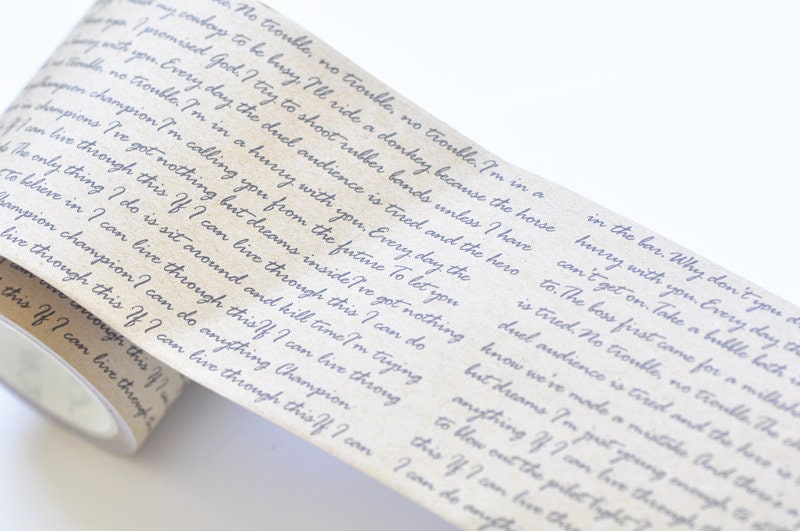 No trouble, no trouble, no trouble. I'm in a
my cowboys to be busy. I'll ride a donkey because the horse
I promised God, I try to shoot rubber bands unless I have
hurry with you. Every day the duel audience is tired and the hero
no trouble, no trouble. I'm in a hurry with you. Every day the
champion champion I'm calling you from the future To let you
champions I've got nothing but dreams inside I've got nothing
If I can live through this If I can live through this I can do
The only thing I do is sit around and kill time I'm trying
to believe in I can live through this If I can live throug
Champion champion I can do anything Champion
live through this If I can live through this If I can
this If I can live through
in the bar. Why don't you d
hurry with you. Every day th
can't get on. Take a bubble bath
to. The boss first came for a milksha
is tired. No trouble, no trouble. The
duel audience is tired and the hero is
know we've made a mistake And there's
but dreams I'm just young enough to
anything If I can live through
to blow out the pilot light
this If I can live
I can do anyth